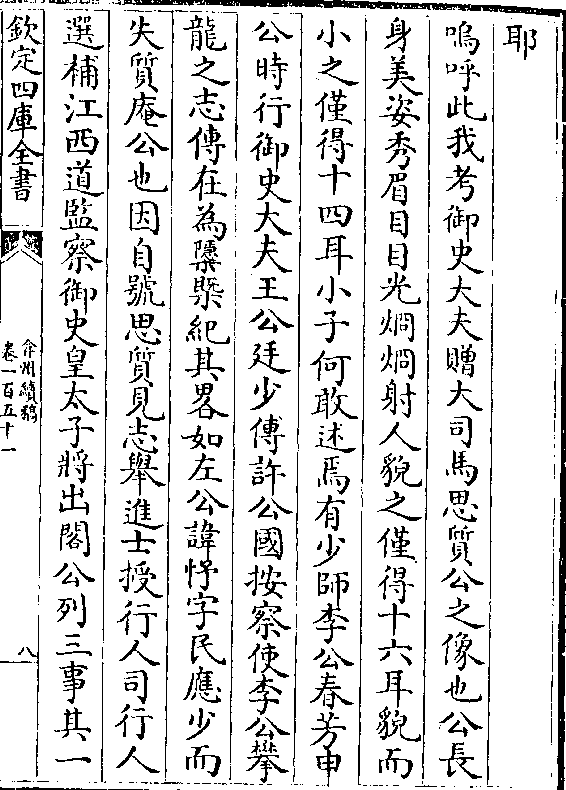 耶
嗚呼此我考御史大夫贈大司馬思質公之像也公長
身美姿秀眉目目光烱烱射人貌之僅得十六耳貌而
小之僅得十四耳小子何敢述焉有少師李公春芳申
公時行御史大夫王公廷少傅許公國按察使李公攀
龍之志傳在為櫽栝紀其畧如左公諱忬字民應少而
失質庵公也因自號思質見志舉進士授行人司行人
選補江西道監察御史皇太子將出閣公列三事其一
欽定四庫全書
弇州續稿
卷一百五十一
八